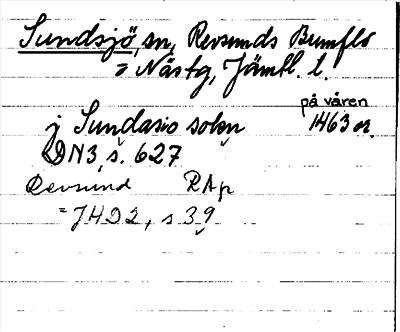 Sundsjö, sn, Revsunds Brunflo
= Nås tg, Jämtl. l.
på våren
j Sundasio sokn 1463 or.
DN3, s. 627
Revsund RAp
= JHD2, s 39